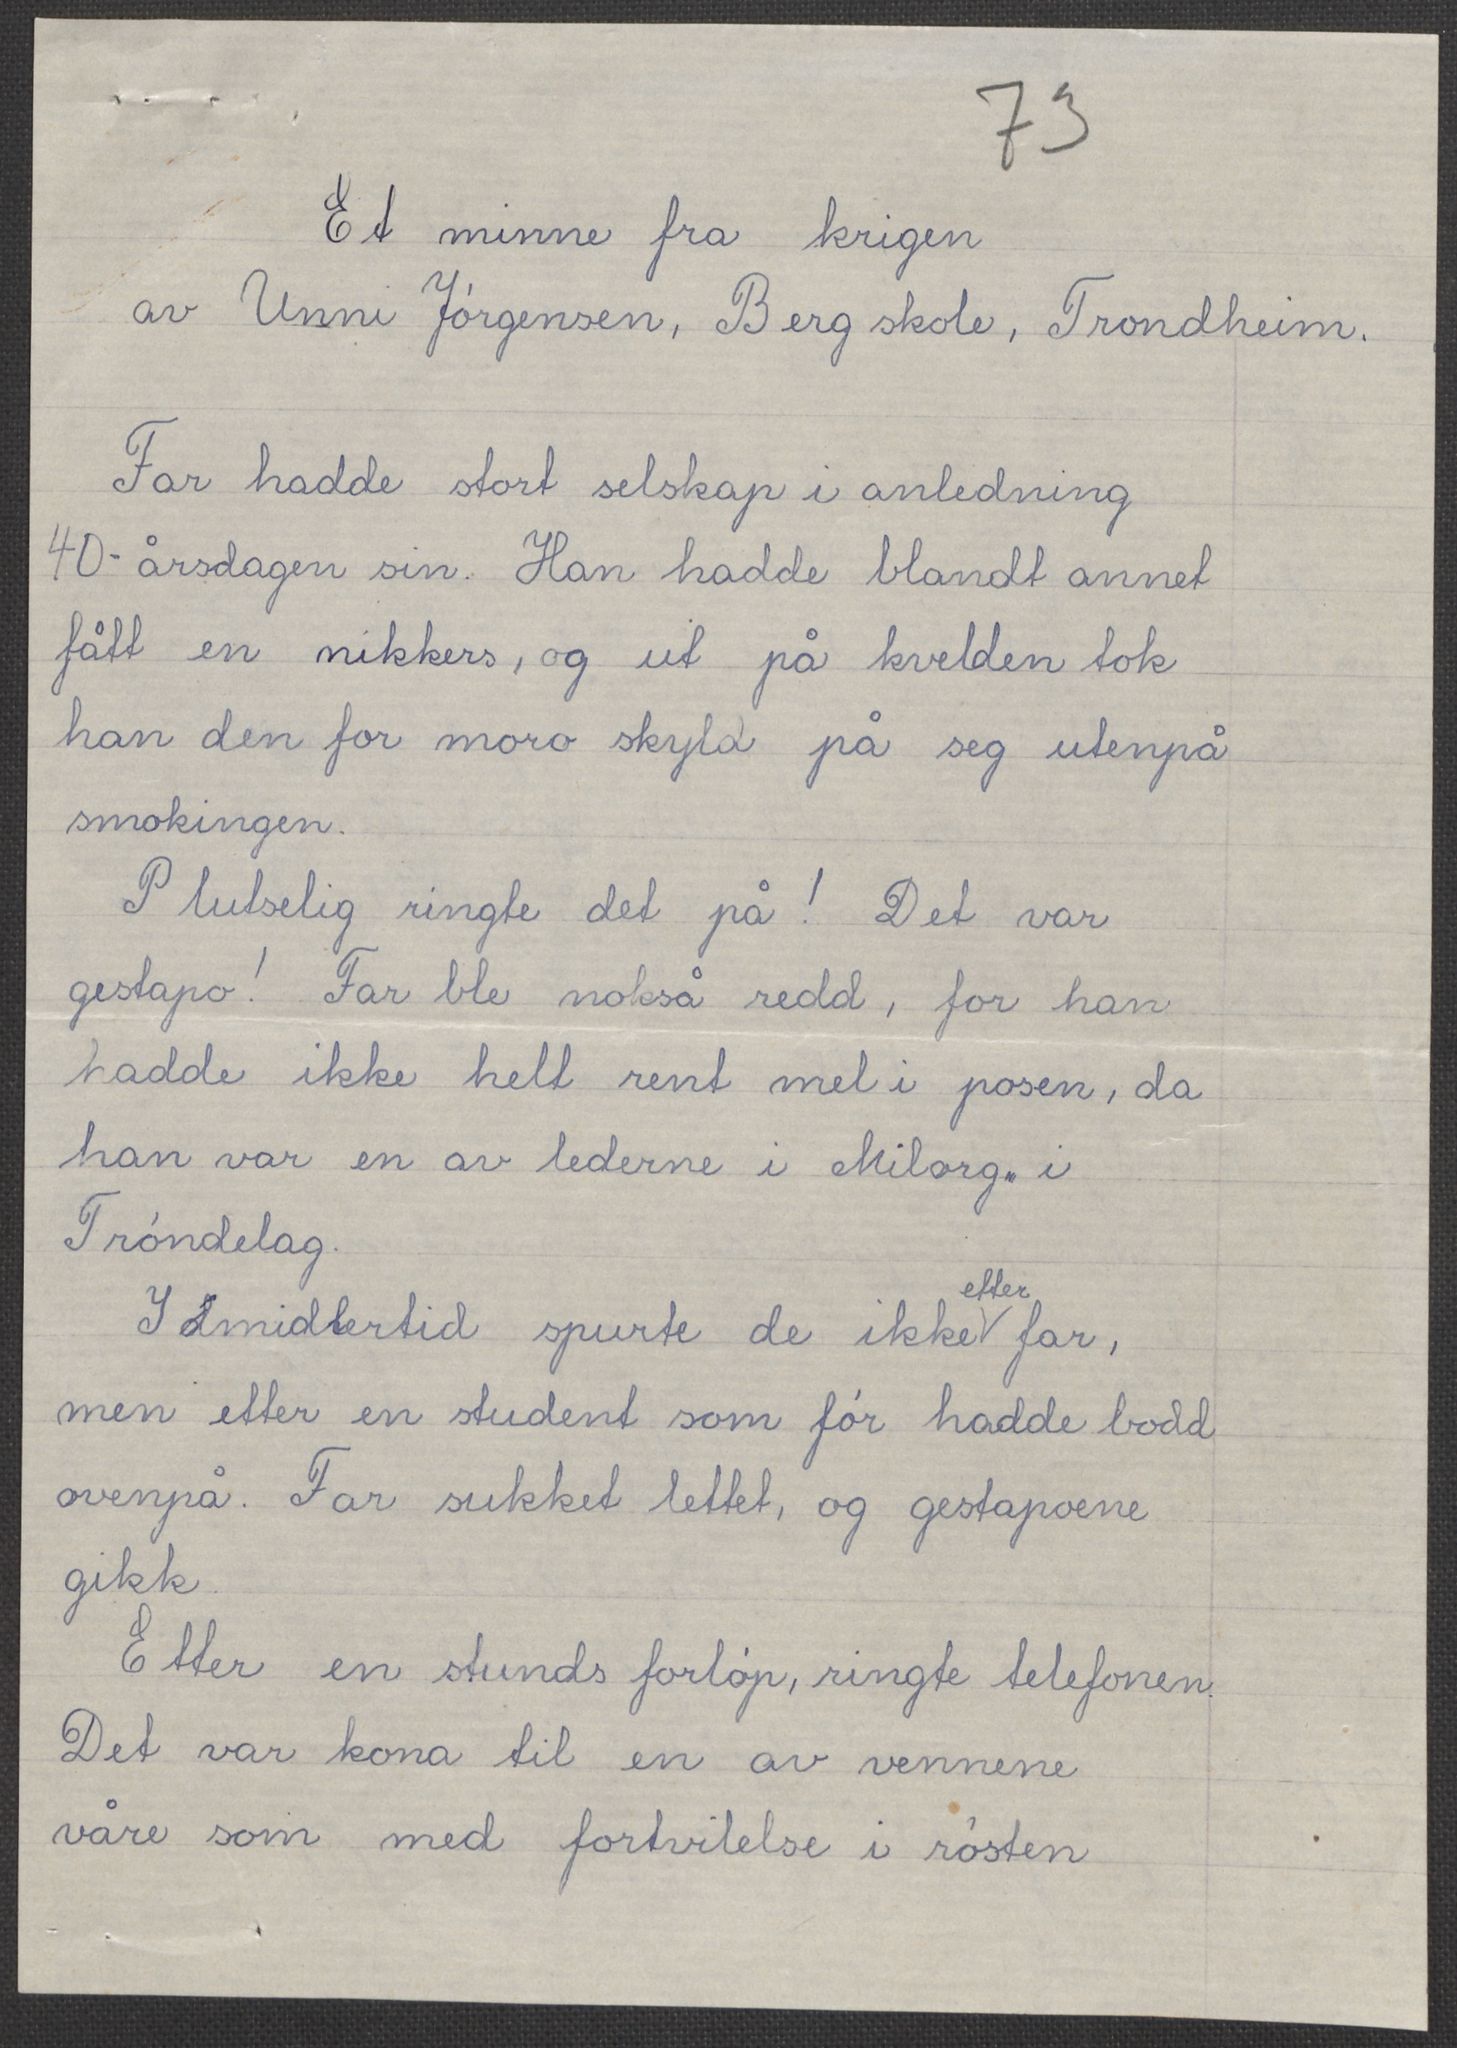 73
Et minne fra krigen
av Unni Jórgensen, Berg skole, Trondheim.
Far hadde stort selskap i anledning
40-årsdagen sin. Han hadde blandt annet
fått en nikkers, og ut på kvelden tok
han den for moro skyld på seg utenpå
smokingen.
Plutselig ringte det på! Det var
gestapo! Far ble nokså redd, for han
hadde ikke helt rent mel i posen, da
han var en av lederne i Milorg. i
Tróndelag.
Imidlertid spurte de ikke etter far,
men etter en student som fór hadde bodd
ovenpå. Far sukket lettet, og gestapoene
gikk.
Etter en stunds forlóp, ringte telefonen.
Det var kona til en av vennene
våre som med fortvilelse i rósten